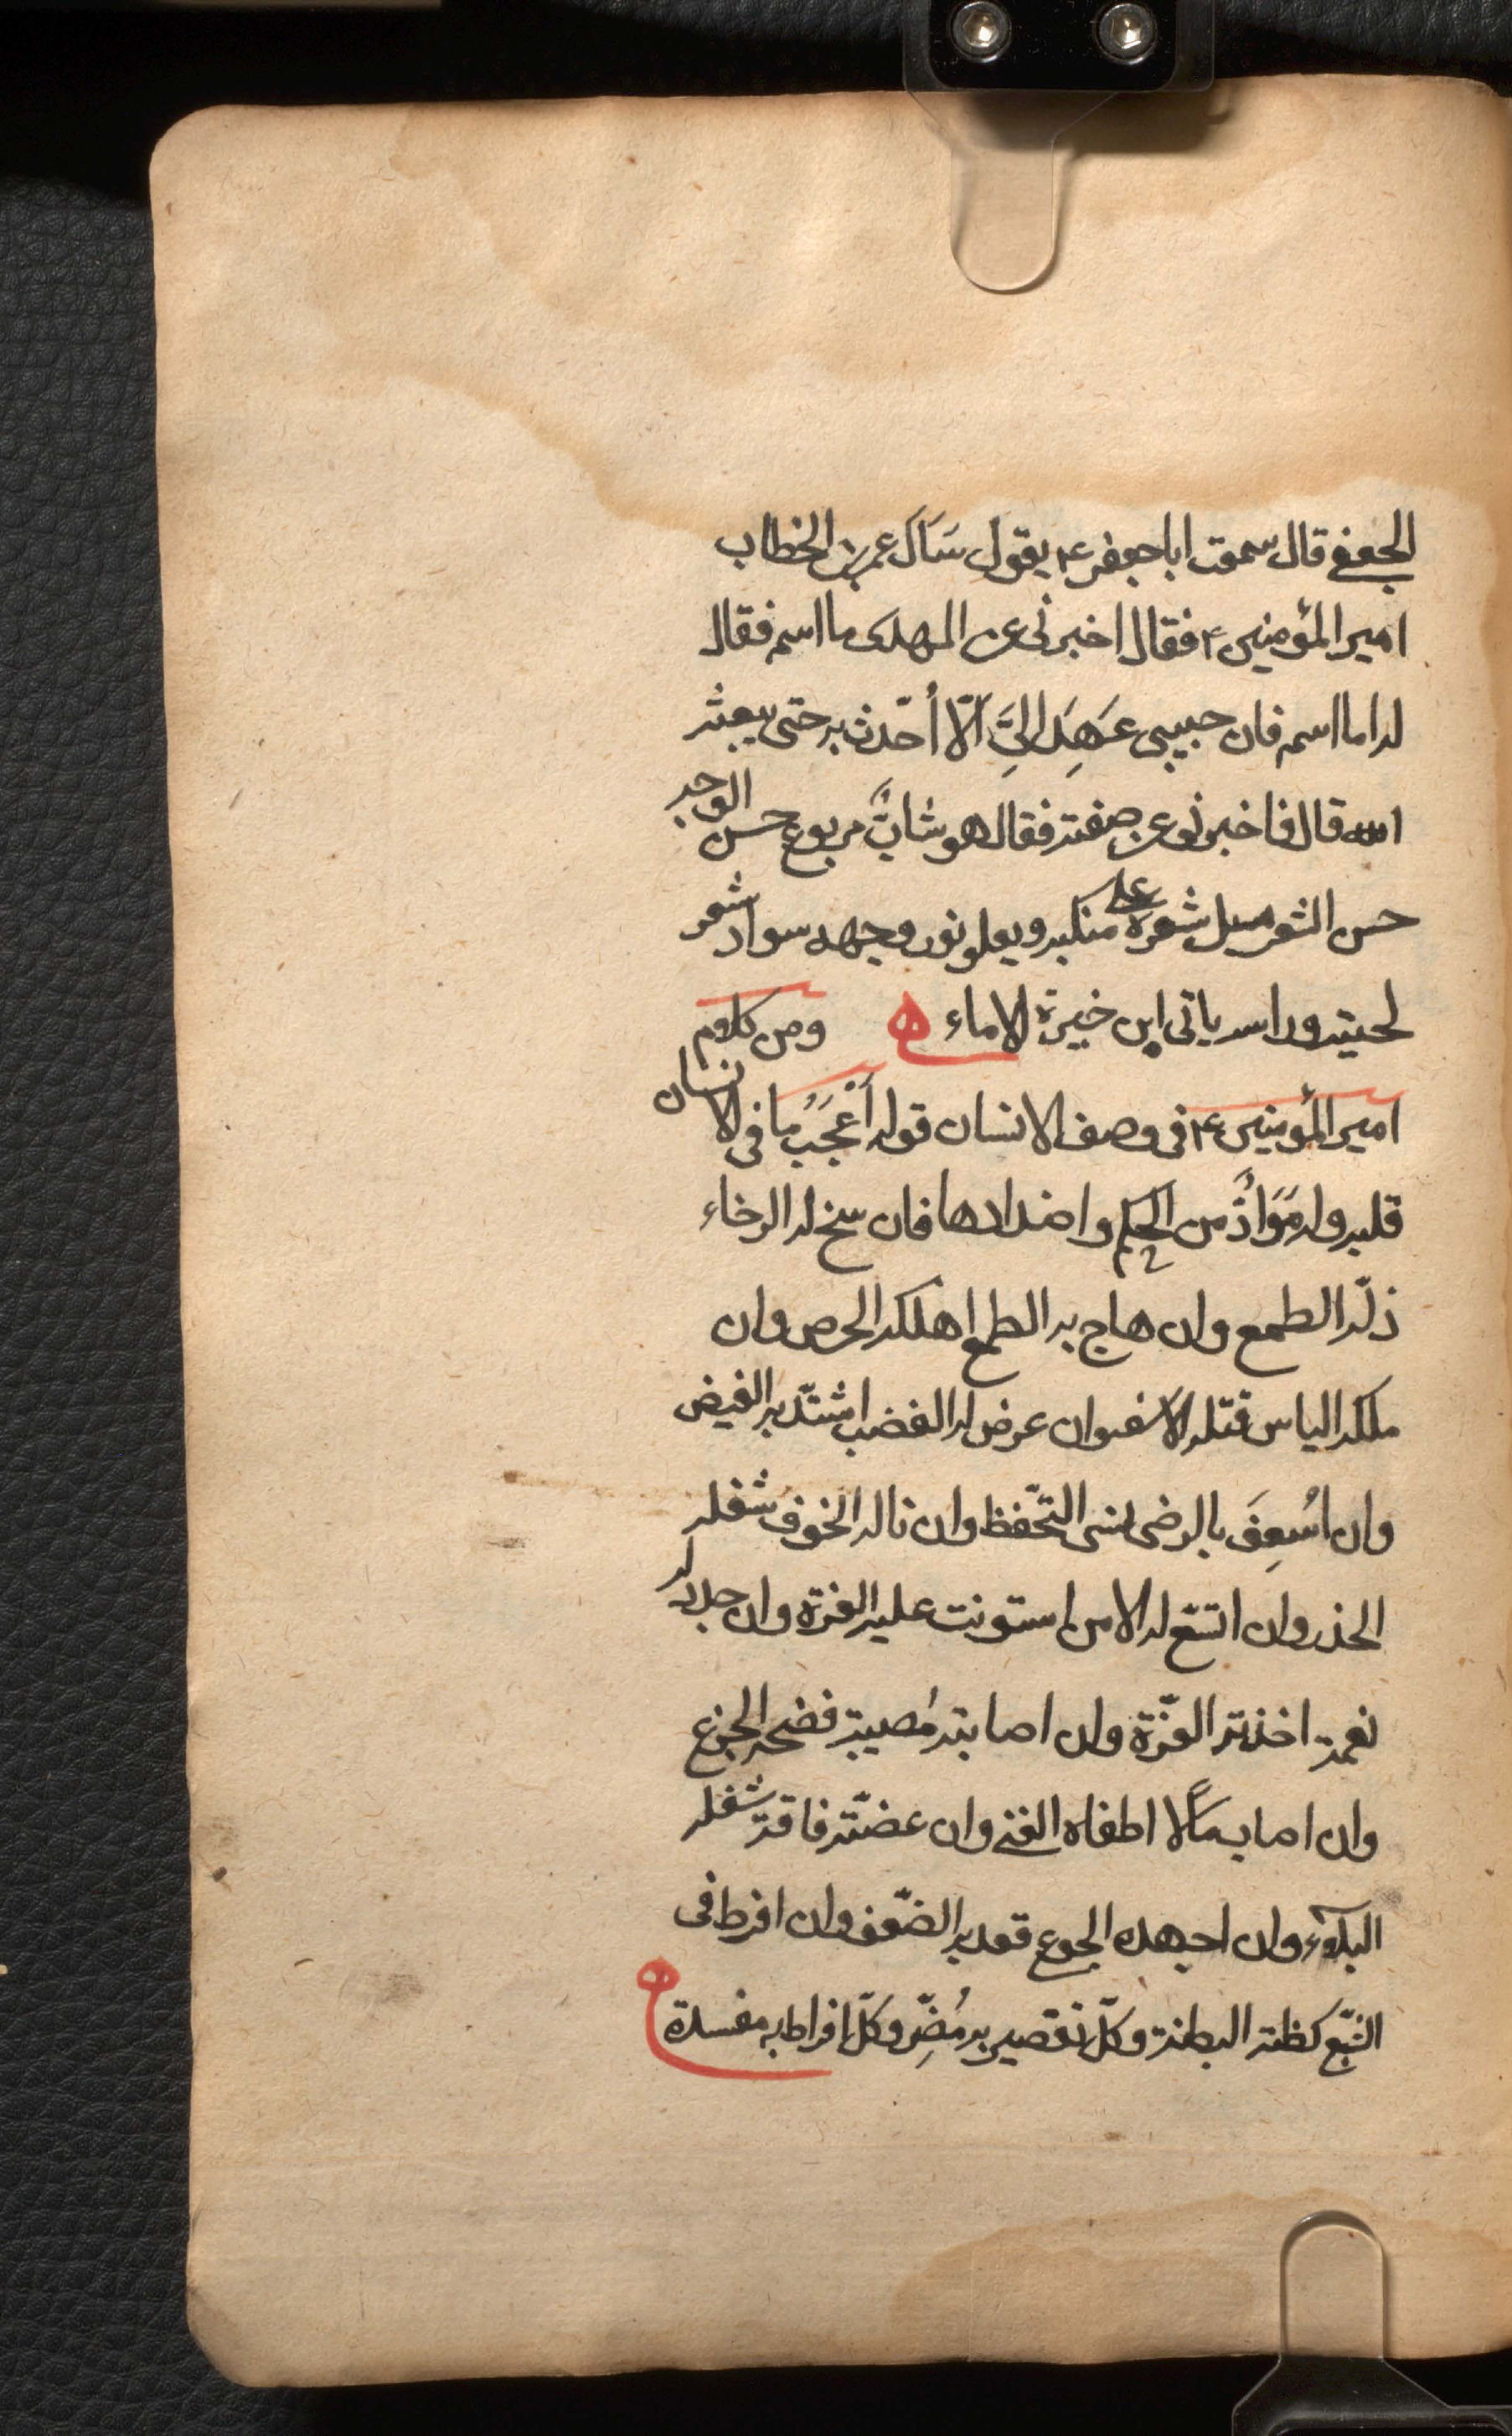 الجعفي قال سمعت ابا جعفر ع يقول سَاَل عمر بن الخطاب
امير المؤمنين ع فقال اخبرني عن المهدى ما اسمه فقال
له اما اسمه فان حبيبي عَهِدَ اليَّ اَلّا اُحّدث به حتى يبعثه
الله قال فاخبرني عن صفته فقال هو شابٌّ مربوع حسن الوجه
حسن الشعر يسيل شعره على منكبيه ويعلو نور وجهه سواد شعر
لحيته وراسه بابي ابن خيرة الاماء ه ومن كلام
امير المؤمنين ع في وصف الانسان قوله اَعْجَبُ ما في الانسان
قلبه وله مَوَادٌّ من الحكم واضدادها فان سنح له الرخاء
ذلّه الطمع وان هاج به الطمع اهلكه الحرص وان
ملكه الياس قتله الاسف وان عرض له الغضب اشتدّ به الغيض
وان اُسْعِفَ بالرضى نسى التحّفظ وان ناله الخوف شغله
الحذر وان اتسع له الامن استونت عليه الغرة وان جدد له
نعمة اخذته العزّة وان اصابته مُصيبة فضحه الجزع
وان اصاب مَالًا اطغاه الغنى وان عضّته فاقة شغله
البلآء وان اجهده الجوع قعد به الضّعف وان افرط في
الشّبع كظته البطنة وكلّ تقصير به مُضِرّ وكلّ افراط به مفسدة ه